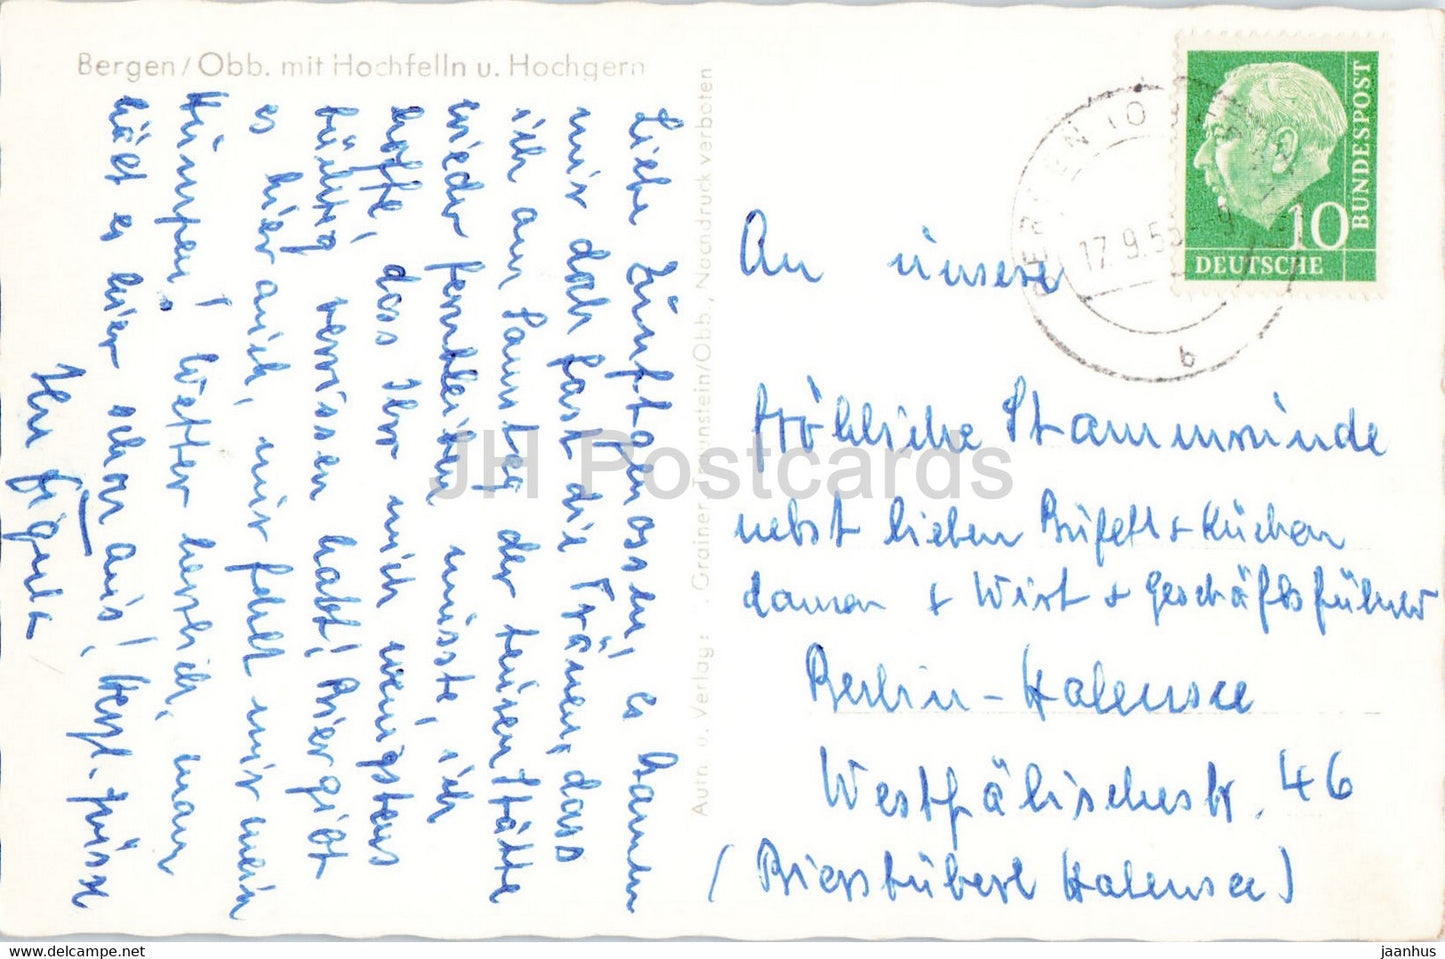 Bergen/Obb. mit Hochfelln u. Hochgern
Liebe Zunftgenossen, es kamen
mir doch fast die Tränen, dass
ich am Samstag der teuren Stätte
wieder fernbleiben musste, ich
hoffe, dass Ihr mich wenigstens
tüchtig vermissen habt! Bier gibt
es hier auch, mir fehlt nur mein
Humpen! Wetter herrlich, man
hält es hier schon aus! Herzl. Grüsse
Ihr
Autn. u. Verlag: Grainer Traunstein/Obb., Nachdruck verboten
BERGEN (O
17.9.5
b
BUNDESPOST
10
DEUTSCHE
An unsere
fröhliche Stammrunde
nebst lieben Büfett + Küchen
damen + Wirt + Geschäftsführer
Berlin-Halensee
Westfälischestr. 46
(Bierstüberl Halensee)
JH Postcards
www.delcampe.net
jaanhus